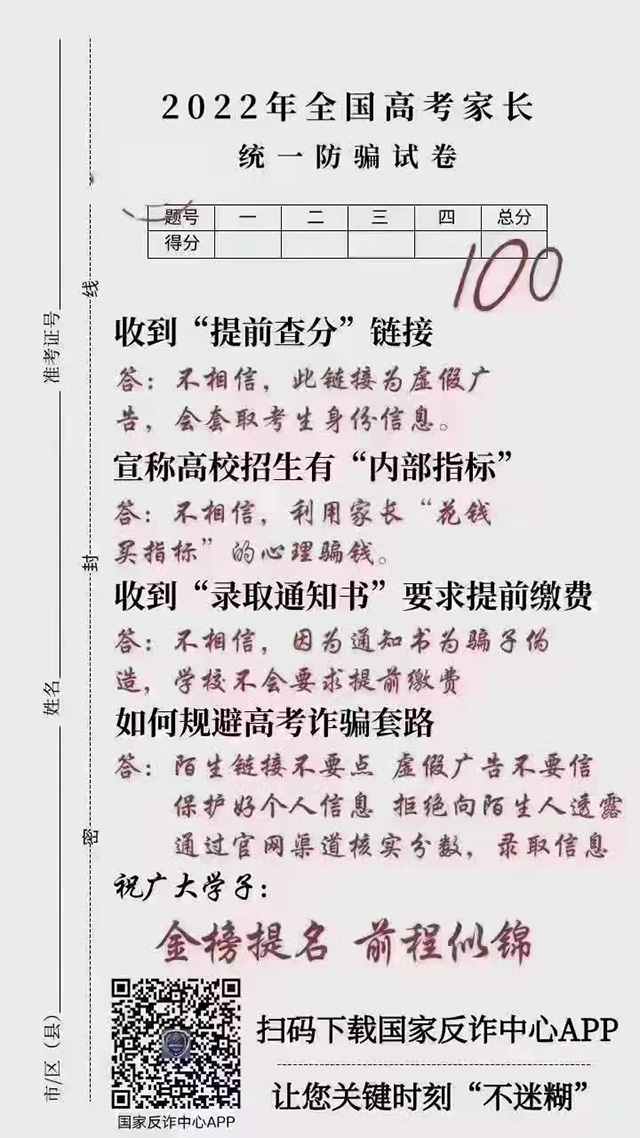 2022年全国高考家长
统一防骗试卷
题号 一 二 三 四 总分
得分
100
收到“提前查分”链接
答：不相信，此链接为虚假广
告，会套取考生身份信息。
宣称高校招生有“内部指标”
答：不相信，利用家长“花钱
买指标”的心理骗钱。
收到“录取通知书”要求提前缴费
答：不相信，因为通知书为骗子伪
造，学校不会要求提前缴费
如何规避高考诈骗套路
答：陌生链接不要点 虚假广告不要信
保护好个人信息 拒绝向陌生人透露
通过官网渠道核实分数，录取信息
祝广大学子：
金榜提名 前程似锦
扫码下载国家反诈中心APP
让您关键时刻“不迷糊”
国家反诈中心APP
市/区（县）
姓名
准考证号
密
封
线